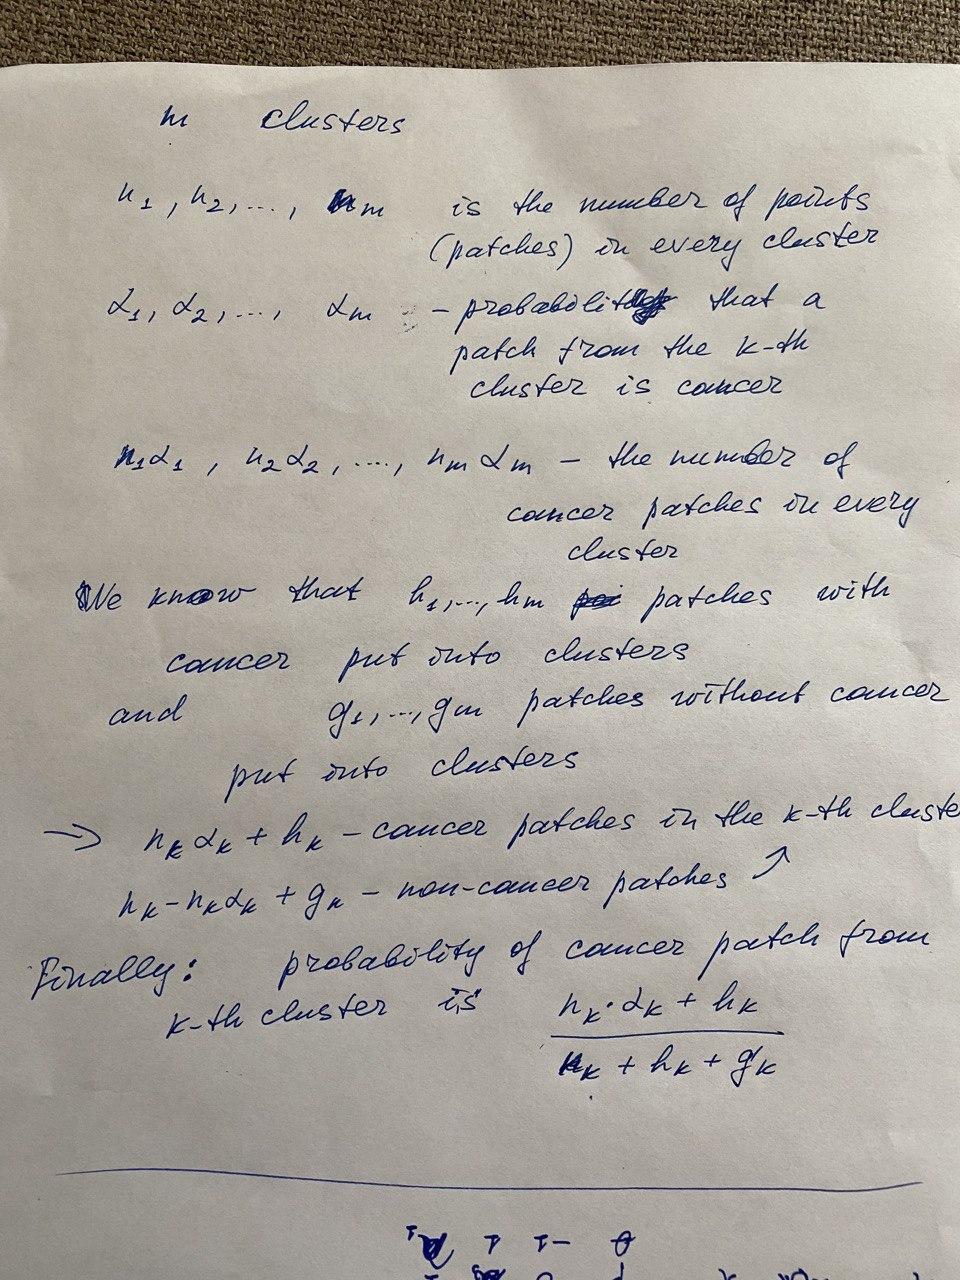 m clusters
n₁, n₂, ..., nₘ is the number of points
(patches) in every cluster
α₁, α₂, ..., αₘ – probability that a
patch from the k-th
cluster is cancer
n₁α₁, n₂α₂, ...., nₘαₘ – the number of
cancer patches in every
cluster
We know that h₁,...,hₘ patches with
cancer put into clusters
and g₁,...,gₘ patches without cancer
put into clusters
→ nₖαₖ + hₖ – cancer patches in the k-th cluste
nₖ-nₖαₖ + gₖ – non-cancer patches ↗
Finally: probability of cancer patch from
k-th cluster is nₖ·αₖ + hₖ
nₖ + hₖ + gₖ